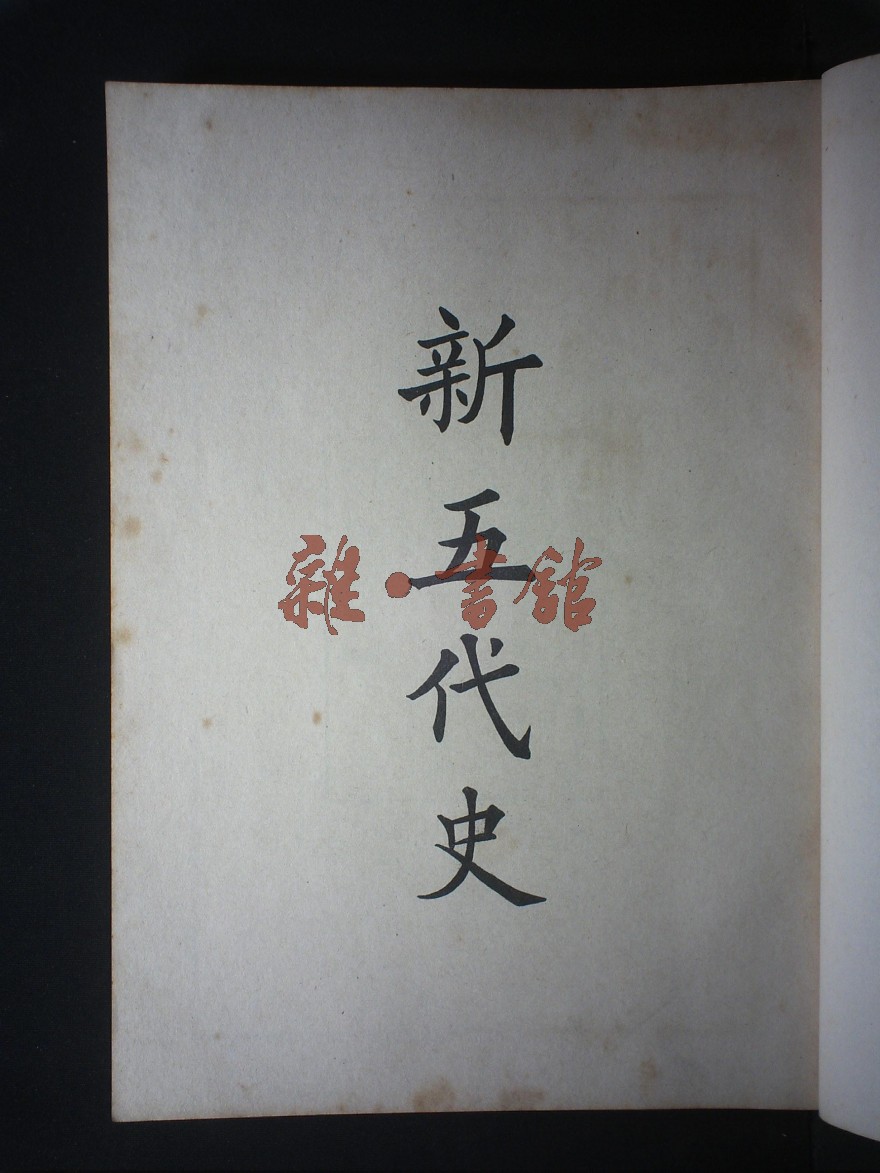 新五代史
雜·書館